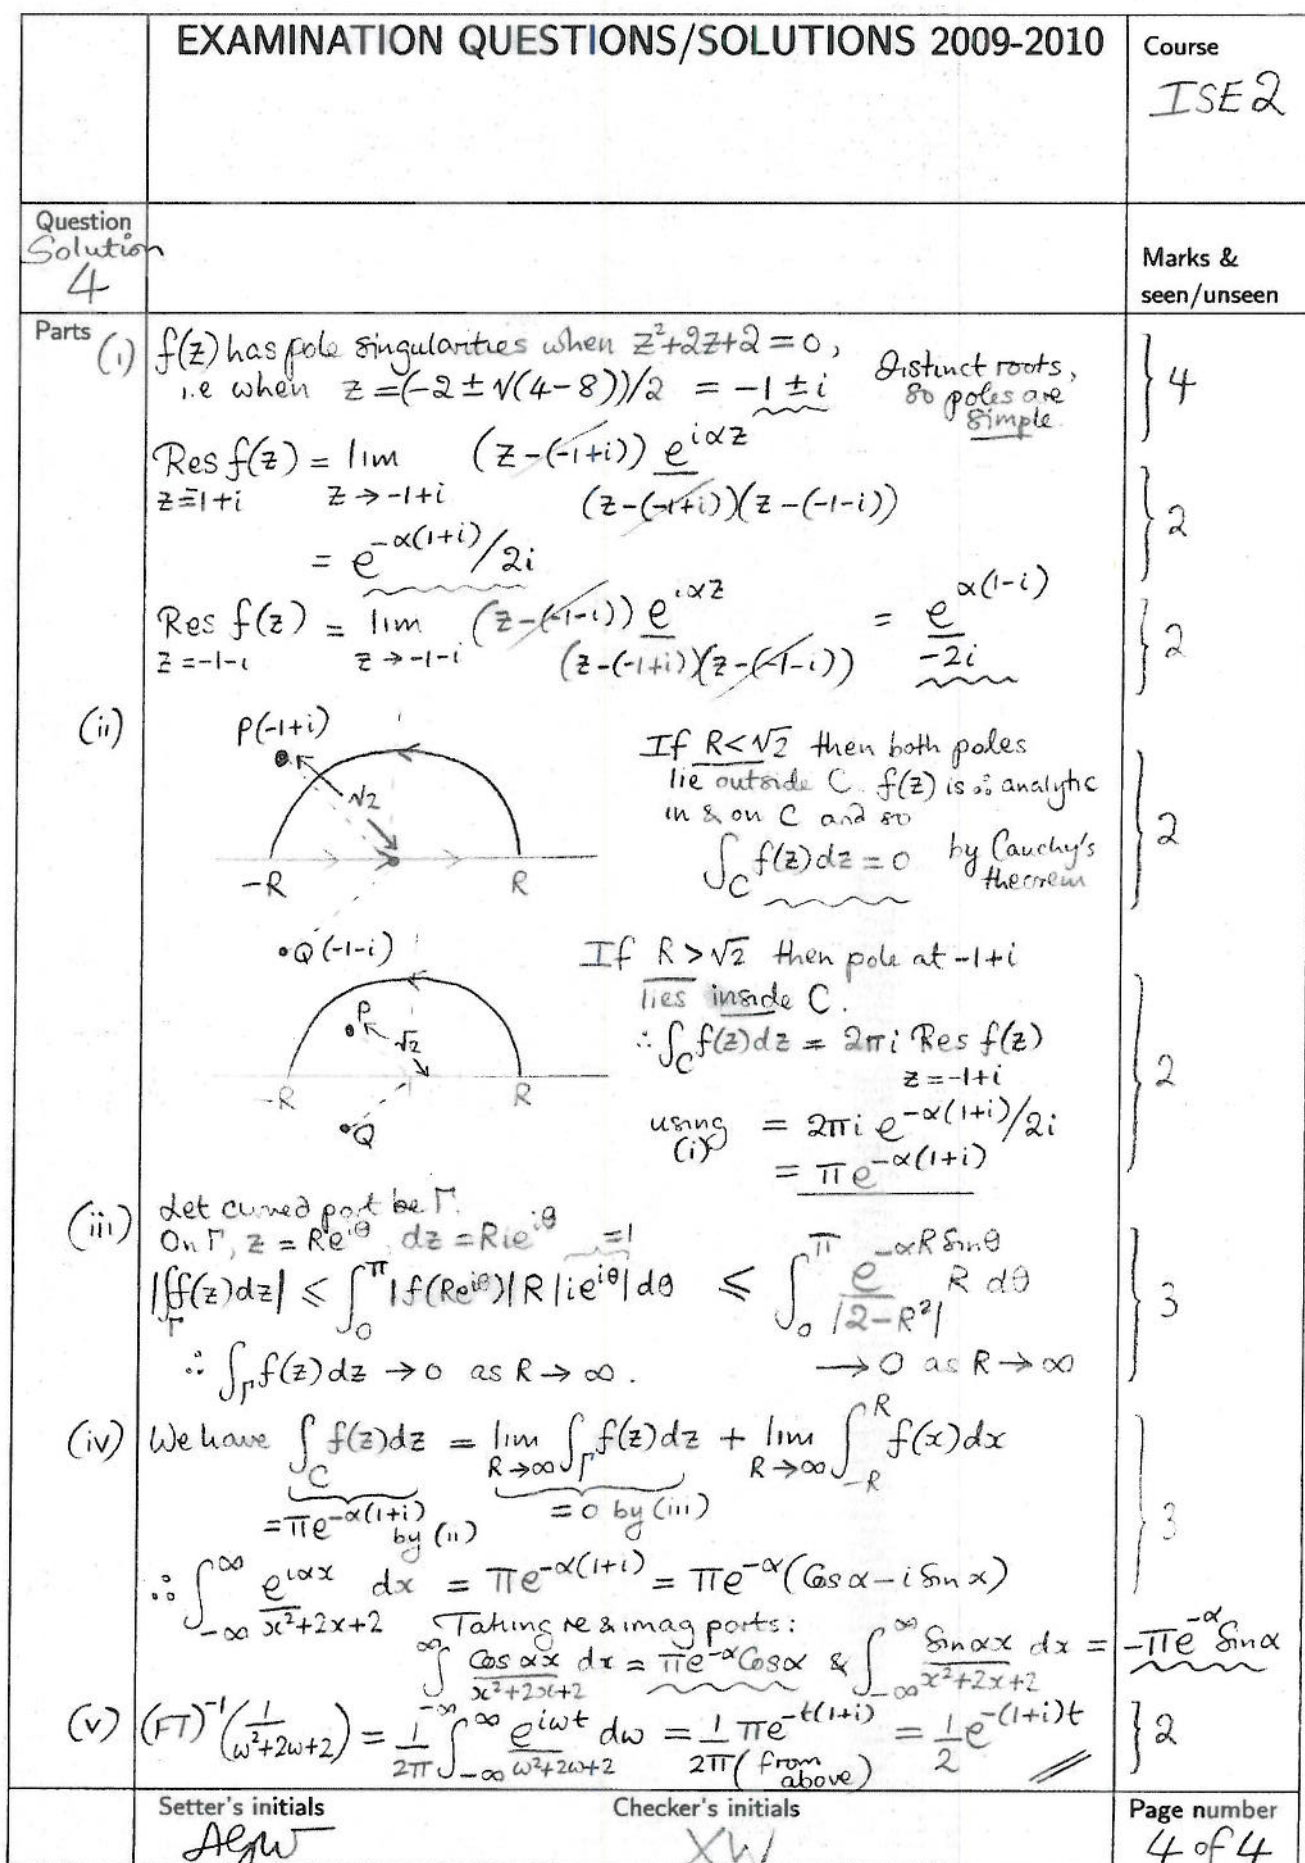 EXAMINATION QUESTIONS/SOLUTIONS 2009-2010
Course
ISE2
Question
Solution
4
Marks &
seen/unseen
Parts
(i) f(z) has pole singularities when z²+2z+2=0,
i.e when z=(-2±√(4-8))/2 = -1±i
Distinct roots,
so poles are
simple.
4
Res f(z) = lim (z-(-1+i)) e^{iαz}
z=-1+i z→-1+i (z-(-1+i))(z-(-1-i))
= e^{-α(1+i)}/2i
2
Res f(z) = lim (z-(-1-i)) e^{iαz} = e^{α(1-i)}
z=-1-i z→-1-i (z-(-1+i))(z-(-1-i)) -2i
2
(ii)
P(-1+i)
√2
-R R
Q(-1-i)
If R<√2 then both poles
lie outside C. f(z) is ∴ analytic
in & on C and so
∫_C f(z)dz = 0 by Cauchy's
theorem
2
P
√2
-R R
Q
If R>√2 then pole at -1+i
lies inside C.
∴ ∫_C f(z)dz = 2πi Res f(z)
z=-1+i
using (i) = 2πi e^{-α(1+i)}/2i
= πe^{-α(1+i)}
2
(iii) Let curved part be Γ.
On Γ, z = Re^{iθ} dz = Rie^{iθ} =1
|∫_Γ f(z)dz| ≤ ∫_0^π |f(Re^{iθ})| R |ie^{iθ}| dθ ≤ ∫_0^π e^{-αR Sinθ}/|2-R²| R dθ
∴ ∫_Γ f(z)dz → 0 as R → ∞. → 0 as R → ∞
3
(iv) We have ∫_C f(z)dz = lim_{R→∞} ∫_Γ f(z)dz + lim_{R→∞} ∫_{-R}^{R} f(x)dx
=πe^{-α(1+i)} by (ii) =0 by (iii)
3
∴ ∫_{-∞}^{∞} e^{iαx}/x²+2x+2 dx = πe^{-α(1+i)} = πe^{-α}(Cosα - i Sinα)
Taking re & imag parts:
∫_{-∞}^{∞} Cos αx/x²+2x+2 dx = πe^{-α}Cosα & ∫_{-∞}^{∞} Sinαx/x²+2x+2 dx = -πe^{-α}Sinα
(v) (FT)^{-1}(1/ω²+2ω+2) = 1/2π ∫_{-∞}^{∞} e^{iωt}/ω²+2ω+2 dω = 1/2π πe^{-t(1+i)} = 1/2 e^{-(1+i)t}
(from
above)
2
Setter's initials
AGW
Checker's initials
XW
Page number
4 of 4